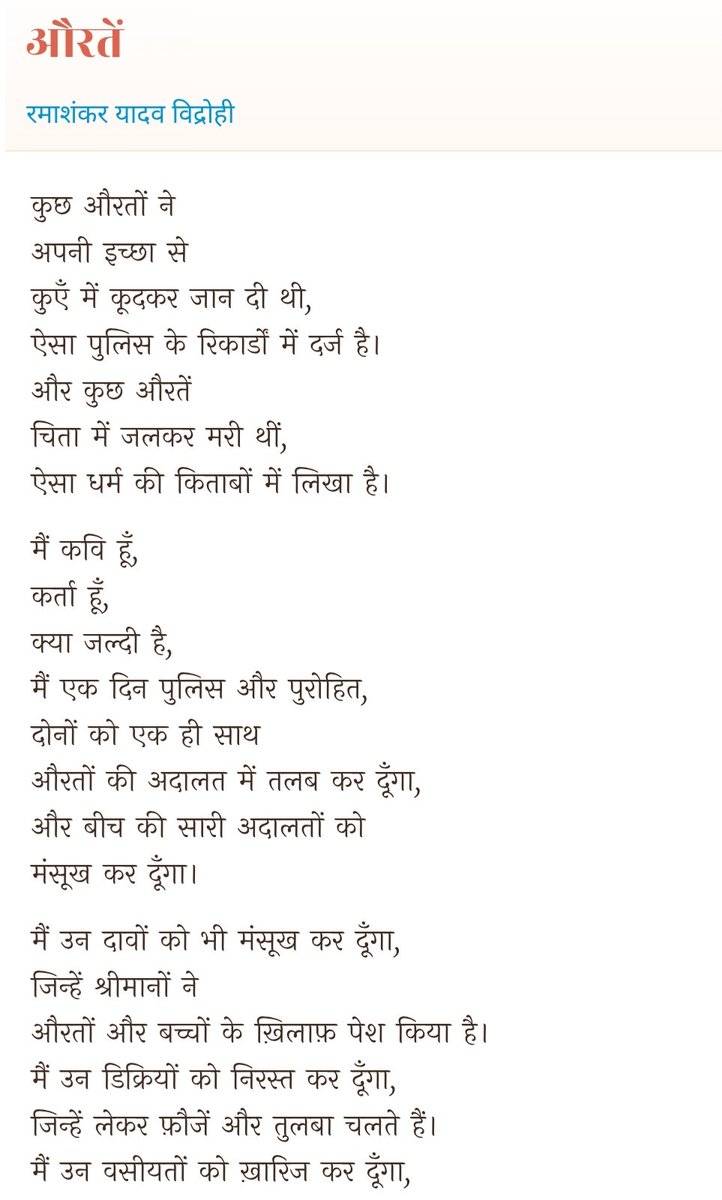 औरतें
रमाशंकर यादव विद्रोही
कुछ औरतों ने
अपनी इच्छा से
कुएँ में कूदकर जान दी थी,
ऐसा पुलिस के रिकार्डों में दर्ज है।
और कुछ औरतें
चिता में जलकर मरी थीं,
ऐसा धर्म की किताबों में लिखा है।
मैं कवि हूँ,
कर्ता हूँ,
क्या जल्दी है,
मैं एक दिन पुलिस और पुरोहित,
दोनों को एक ही साथ
औरतों की अदालत में तलब कर दूँगा,
और बीच की सारी अदालतों को
मंसूख कर दूँगा।
मैं उन दावों को भी मंसूख कर दूँगा,
जिन्हें श्रीमानों ने
औरतों और बच्चों के ख़िलाफ़ पेश किया है।
मैं उन डिक्रियों को निरस्त कर दूँगा,
जिन्हें लेकर फ़ौजें और तुलबा चलते हैं।
मैं उन वसीयतों को ख़ारिज कर दूँगा,